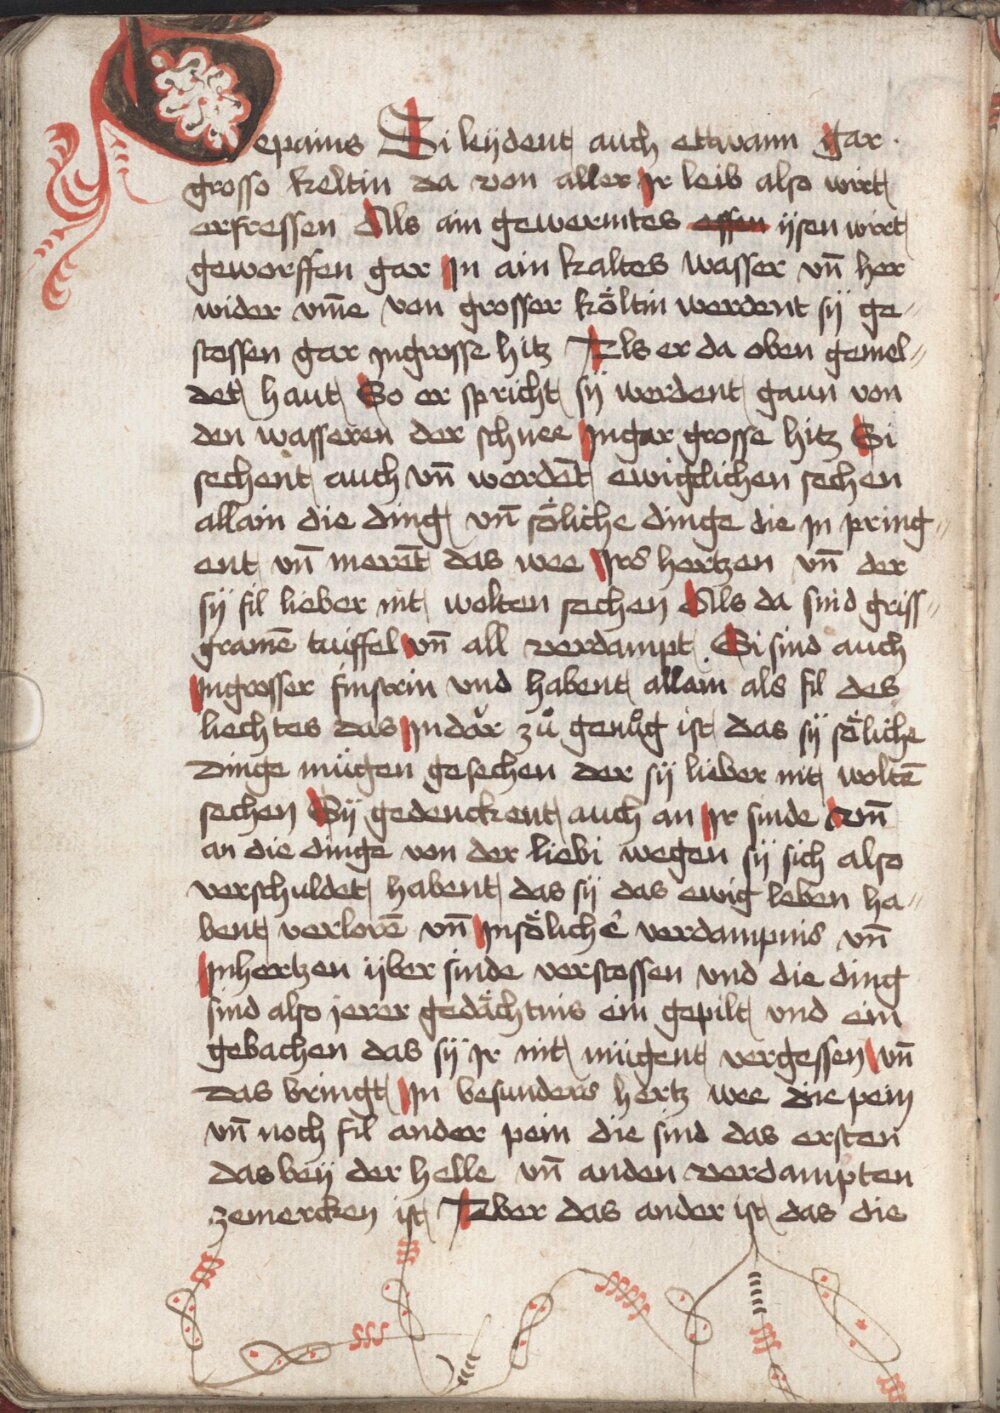 gepains Si leÿdent auch ettwann gar
grosso keltin da von aller Jr leib also wirt
erfressen Als ain gewermtes essen ÿsen wirt
geworffen gar Jn ain kaltes wasser vn̄ her
wider vm̄e von grosser költin werdent sÿ ge-
stossen gar Jngrosse hitz Als er da oben gemel-
det haut So er spricht sÿ werdent gaun von
den wasseren der schnee Jngar grosse hitz Si
sechent auch vn̄ werdēt ewigclichen sechen
allain die ding vn̄ söliche dinge die Jn pring-
ent vn̄ merēt das wee Jrs hertzen vn̄ der
sÿ fil lieber nit wolten sechen Als da sind griss-
gramē tuiffel vn̄ all verdampt Si sind auch
Jngrosser finstrin vnd habent allain als fil des
liechtes das Jndar zů genůg ist das sÿ söliche
dinge mügen gesechen der sÿ lieber nit woltē
sechen Sÿ gedenckent auch an Jr sinde vm̄
an die dinge von der liebi wegen sÿ sich also
verschuldet habent das sÿ das ewig leben ha-
bent verlorē vn̄ Jnsölichē verdampnis vn̄
Jnhertzen ÿber sinde verstossen vnd die ding
sind also jerer gedächtnis ein gepilt vnd ein
gebachen das sÿ Jr nit mügent vergessen vn̄
das bringt Jn besunders hertz wee die pein
vn̄ noch fil ander pein die sind das ersten
das beÿ der helle vn̄ anden verdampten
zemercken ist Aber das ander ist das die